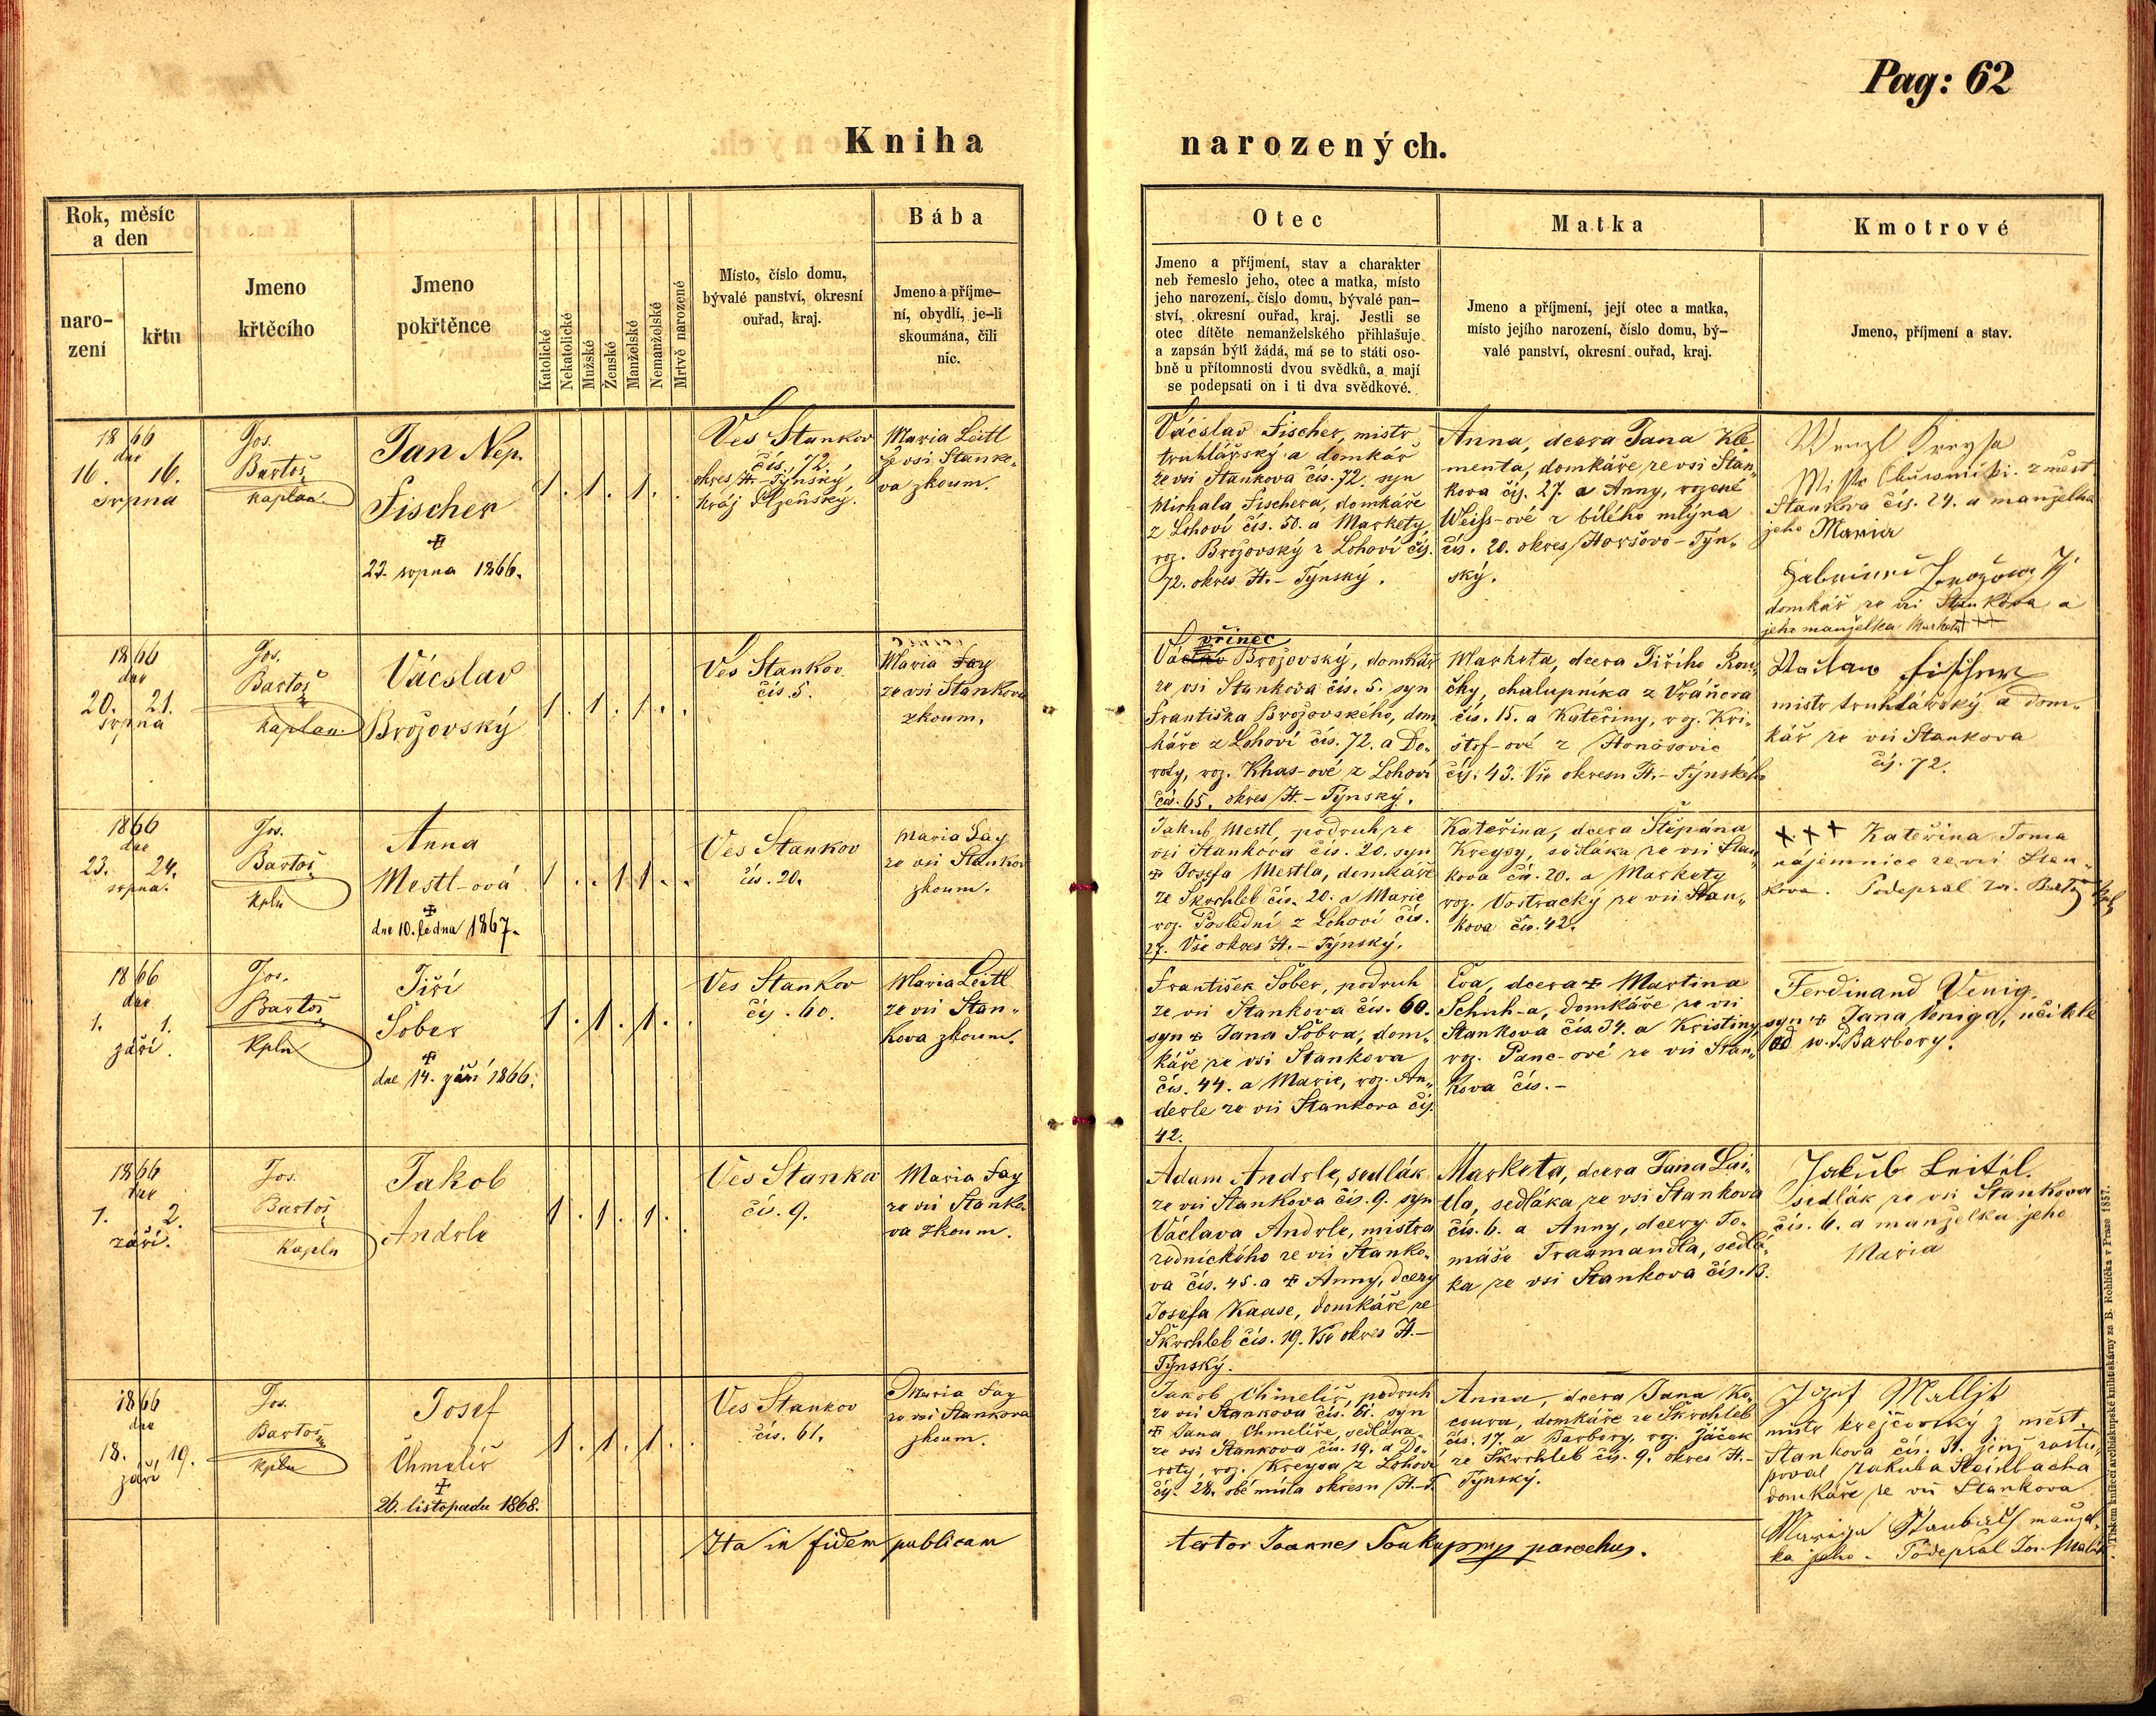 Pag: 62
Kniha narozených.
Rok, měsíc
a den
naro-
zení
křtu
Jmeno
křtěcího
Jmeno
pokřtěnce
Katolické
Nekatolické
Mužské
Ženské
Manželské
Nemanželské
Mrtvě narozené
Místo, číslo domu,
bývalé panství, okresní
ouřad, kraj.
Bába
Jmeno a příjme-
ní, obydlí, je-li
skoumána, čili
nic.
Otec
Jmeno a příjmení, stav a charakter
neb řemeslo jeho, otec a matka, místo
jeho narození, číslo domu, bývalé pan-
ství, okresní ouřad, kraj. Jestli se
otec dítěte nemanželského přihlašuje
a zapsán býti žádá, má se to státi oso-
bně u přítomnosti dvou svědků, a mají
se podepsati on i ti dva svědkové.
Matka
Jmeno a příjmení, její otec a matka,
místo jejího narození, číslo domu, bý-
valé panství, okresní ouřad, kraj.
Kmotrové
Jmeno, příjmení a stav.
1866
dne
16. 16.
srpna
Jos.
Bartoš
kaplan
Jan Nep.
Fischer
✠
23. srpna 1866.
1. 1. 1.
Ves Stankov
čís. 72.
okres H.-Týnský,
kráj Plzeňský.
Maria Leitl
ze vsi Stanko-
va zkoum.
Vácslav Fischer, mistr
truhlářský a domkář
ze vsi Stankova čís. 72. syn
Michala Fischera, domkáře
z Lohoví čís. 50. a Markety,
roz. Brožovský z Lohoví čís.
72. okres H.-Týnský.
Anna, dcera Jana Kle-
menta, domkáře ze vsi Stan-
kova čís. 27. a Anny, rozené
Weiss-ové z bílého mlýna
čís. 20. okres Horšovo-Týn-
ský.
Wenzl
z měst
Stankova čís. 24. a manželka
jeho Maria
domkář ze vsi Stankova a
jeho manželka Marketa +++
1866
dne
20. 21.
srpna
Jos.
Bartoš
kaplan.
Vácslav
Brožovský
1. 1. 1.
Ves Stankov
čís. 5.
Maria Fay
ze vsi Stankova
zkoum.
vřinec
Brožovský, domkář
ze vsi Stankova čís. 5. syn
Františka Brožovského, dom
káře z Lohoví čís. 72. a Do-
roty, roz. Khas-ové z Lohoví
čís. 65. okres H.-Týnský.
Marketa, dcera Jiřího Kou-
čky, chalupníka z Vránova
čís. 15. a Kateřiny, roz. Kri-
štof-ové z Honosovic
čís. 43. Vše okresu H.-Týnského
Václaw Fischer
mistr truhlářský a dom-
kář ze vsi Stankova
čís. 72.
1866
dne
23. 24.
srpna.
Jos.
Bartoš
kpln
Anna
Mestl-ová
✠
dne 10. ledna 1867.
1. 1 1.
Ves Stankov
čís. 20.
Maria Fay
ze vsi Stankov
zkoum.
Jakub Mestl, podruh ze
vsi Stankova čís. 20. syn
✠ Josefa Mestla, domkáře
ze Škrchleb čís. 20. a Marie
roz. Poslední z Lohoví čís.
27. Vše okres H.-Týnský.
Kateřina, dcera Štěpána
Kreysy, sedláka ze vsi Stan
kova čís. 20. a Markety
roz. Vostracký ze vsi Stan-
kova čís. 42.
+++ Kateřina Toma
nájemnice ze vsi Stan-
kova. Podepsal Jos. Bartoš kpl
1866
dne
1. 1.
září.
Jos.
Bartoš
kpln
Jiří
Šober
✠
dne 14. září 1866.
1. 1. 1.
Ves Stankov
čís. 60.
Maria Leitl
ze vsi Stan-
kova zkoum.
František Šober, podruh
ze vsi Stankova čís. 60.
syn ✠ Jana Šobra, dom-
káře ze vsi Stankova
čís. 44. a Marie, roz. An-
derle ze vsi Stankova čís.
42.
Eva, dcera ✠ Martina
Schuh-a, domkáře ze vsi
Stankova čís. 34. a Kristiny
roz. Panc-ové ze vsi Stan-
kova čís. -
Ferdinand Venig,
syn ✠ Jana Veniga, učitele
od sv. Barbory.
1866
dne
1. 2.
září.
Jos.
Bartoš
kapln
Jakob
Andrle
1. 1. 1.
Ves Stankov
čís. 9.
Maria Fay
ze vsi Stanko-
va zkoum.
Adam Andrle, sedlák
ze vsi Stankova čís. 9. syn
Václava Andrle, mistra
řeznického ze vsi Stanko-
va čís. 45. a ✠ Anny, dcery
Josefa Kause, domkáře ze
Škrchleb čís. 19. Vše okres H.-
Týnský.
Marketa, dcera Jana Lai-
tla, sedláka ze vsi Stankova
čís. 6. a Anny, dcery To-
máše Traumandla, sedlá-
ka ze vsi Stankova čís. 13.
Jakub Leitl.
sedlák ze vsi Stankova
čís. 6. a manželka jeho
Maria
1866
dne
18. 19.
září
Jos.
Bartoš
kpln
Josef
Chmelíř
✠
26. listopadu 1868.
1. 1. 1.
Ves Stankov
čís. 61.
Maria Fay
ze vsi Stankova
zkoum.
Jakob Chmelíř, podruh
ze vsi Stankova čís. 61. syn
✠ Jana Chmelíře, sedláka
ze vsi Stankova čís. 19. a Do-
roty, roz. Kreysa z Lohoví
čís. 28. obé místa okresu H.-T.
Anna, dcera Jana Ko-
coura, domkáře ze Škrchleb
čís. 17. a Barbory, roz. Žáček
ze Škrchleb čís. 9. okres H.-
Týnský.
Jozef
mistr krejčovský z měst.
Stankova čís. 31. jenž zastu-
poval Jakuba Steinbacha
domkáře ze vsi Stankova
manžel-
ka jeho. Podepsal Jos. Malík
Ita in fidem publicam
testor Joannes Soukup mp parochus.
Tiskem knížecí arcibiskupské knihtiskárny za B. Rohlíčka v Praze 1857.